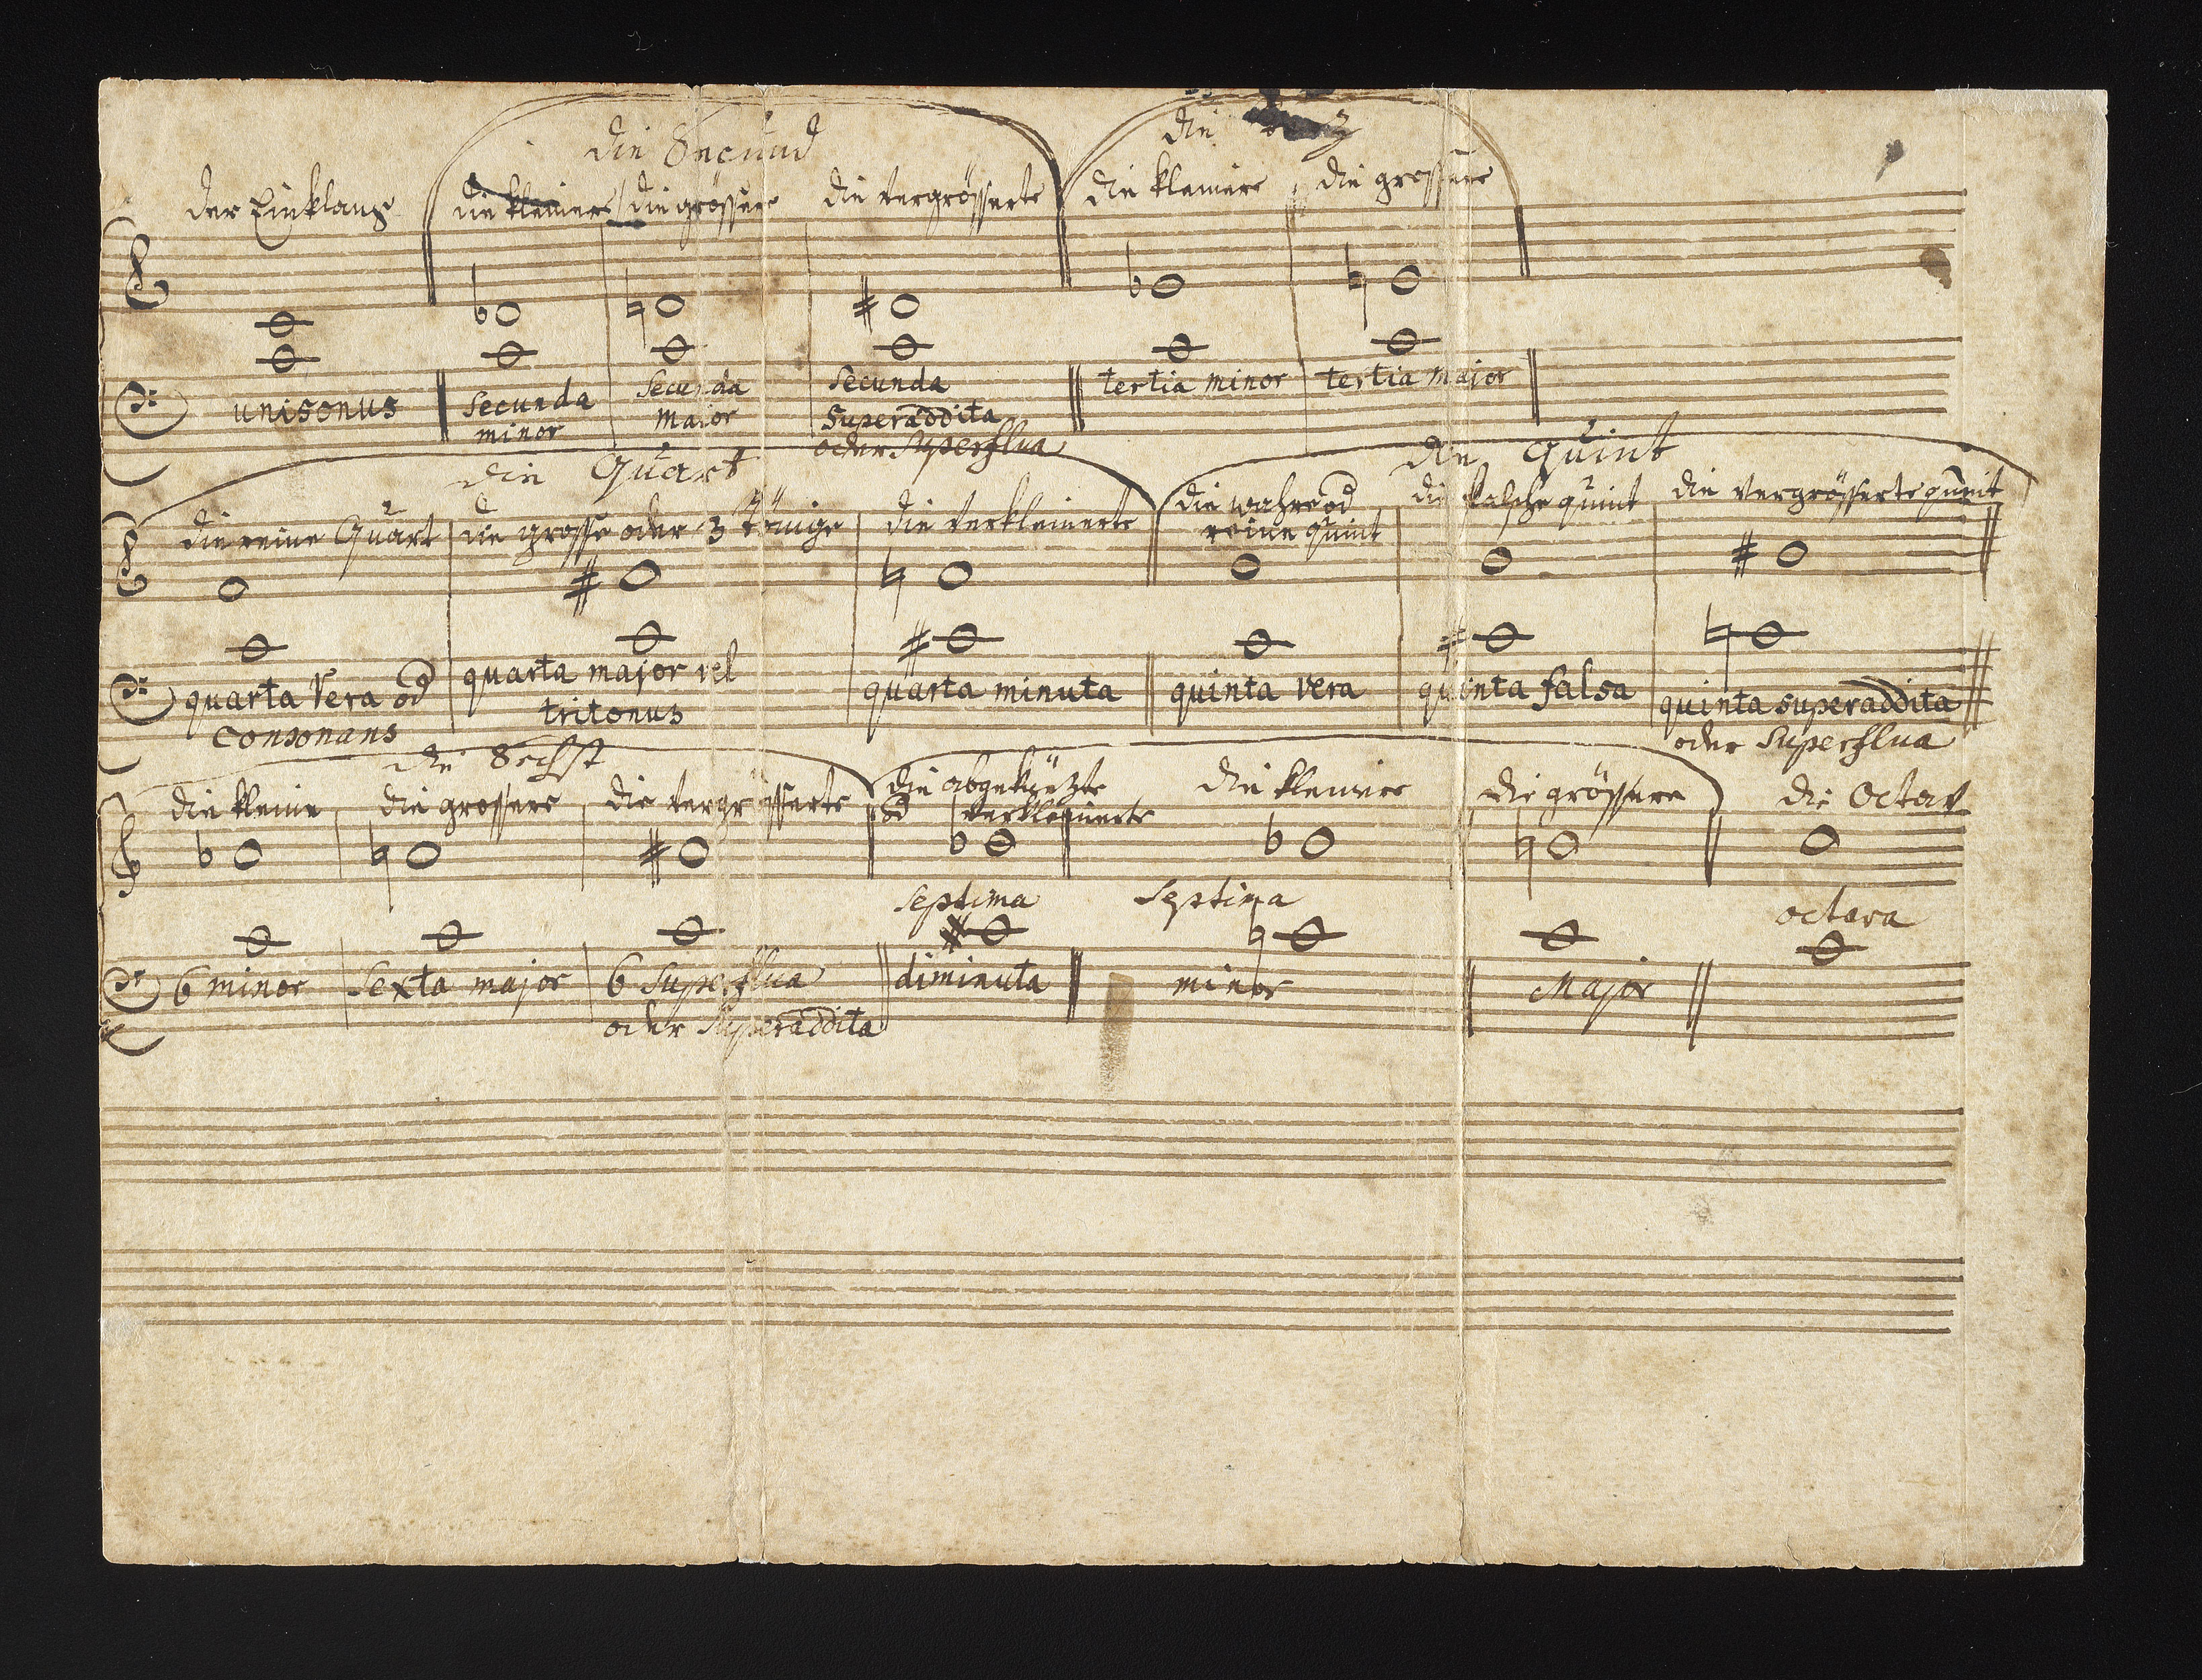 die Secund
die
der Einklang
die kleinere
die grössere
die vergrösserte
die kleinere
die grossere
unisonus
Secunda
minor
Secunda
major
Secunda
Superaddita
oder Superflua
tertia minor
tertia major
die Quart
die Quint
die reine Quart
die grosse oder 3 tönige
die verkleinerte
die wahre od
reine quint
die falsche quint
die vergrösserte quint
quarta vera od
Consonans
quarta major vel
tritonus
quarta minuta
quinta vera
quinta falsa
quinta superaddita
oder Superflua
die Sechst
die kleine
die grossere
die vergrösserte
die abgekürzte
od verkleinerte
die kleinere
die grössere
die Octav
Septima
Septima
octava
6 minor
Sexta major
6 Superflua
oder Superaddita
diminuta
minor
Major